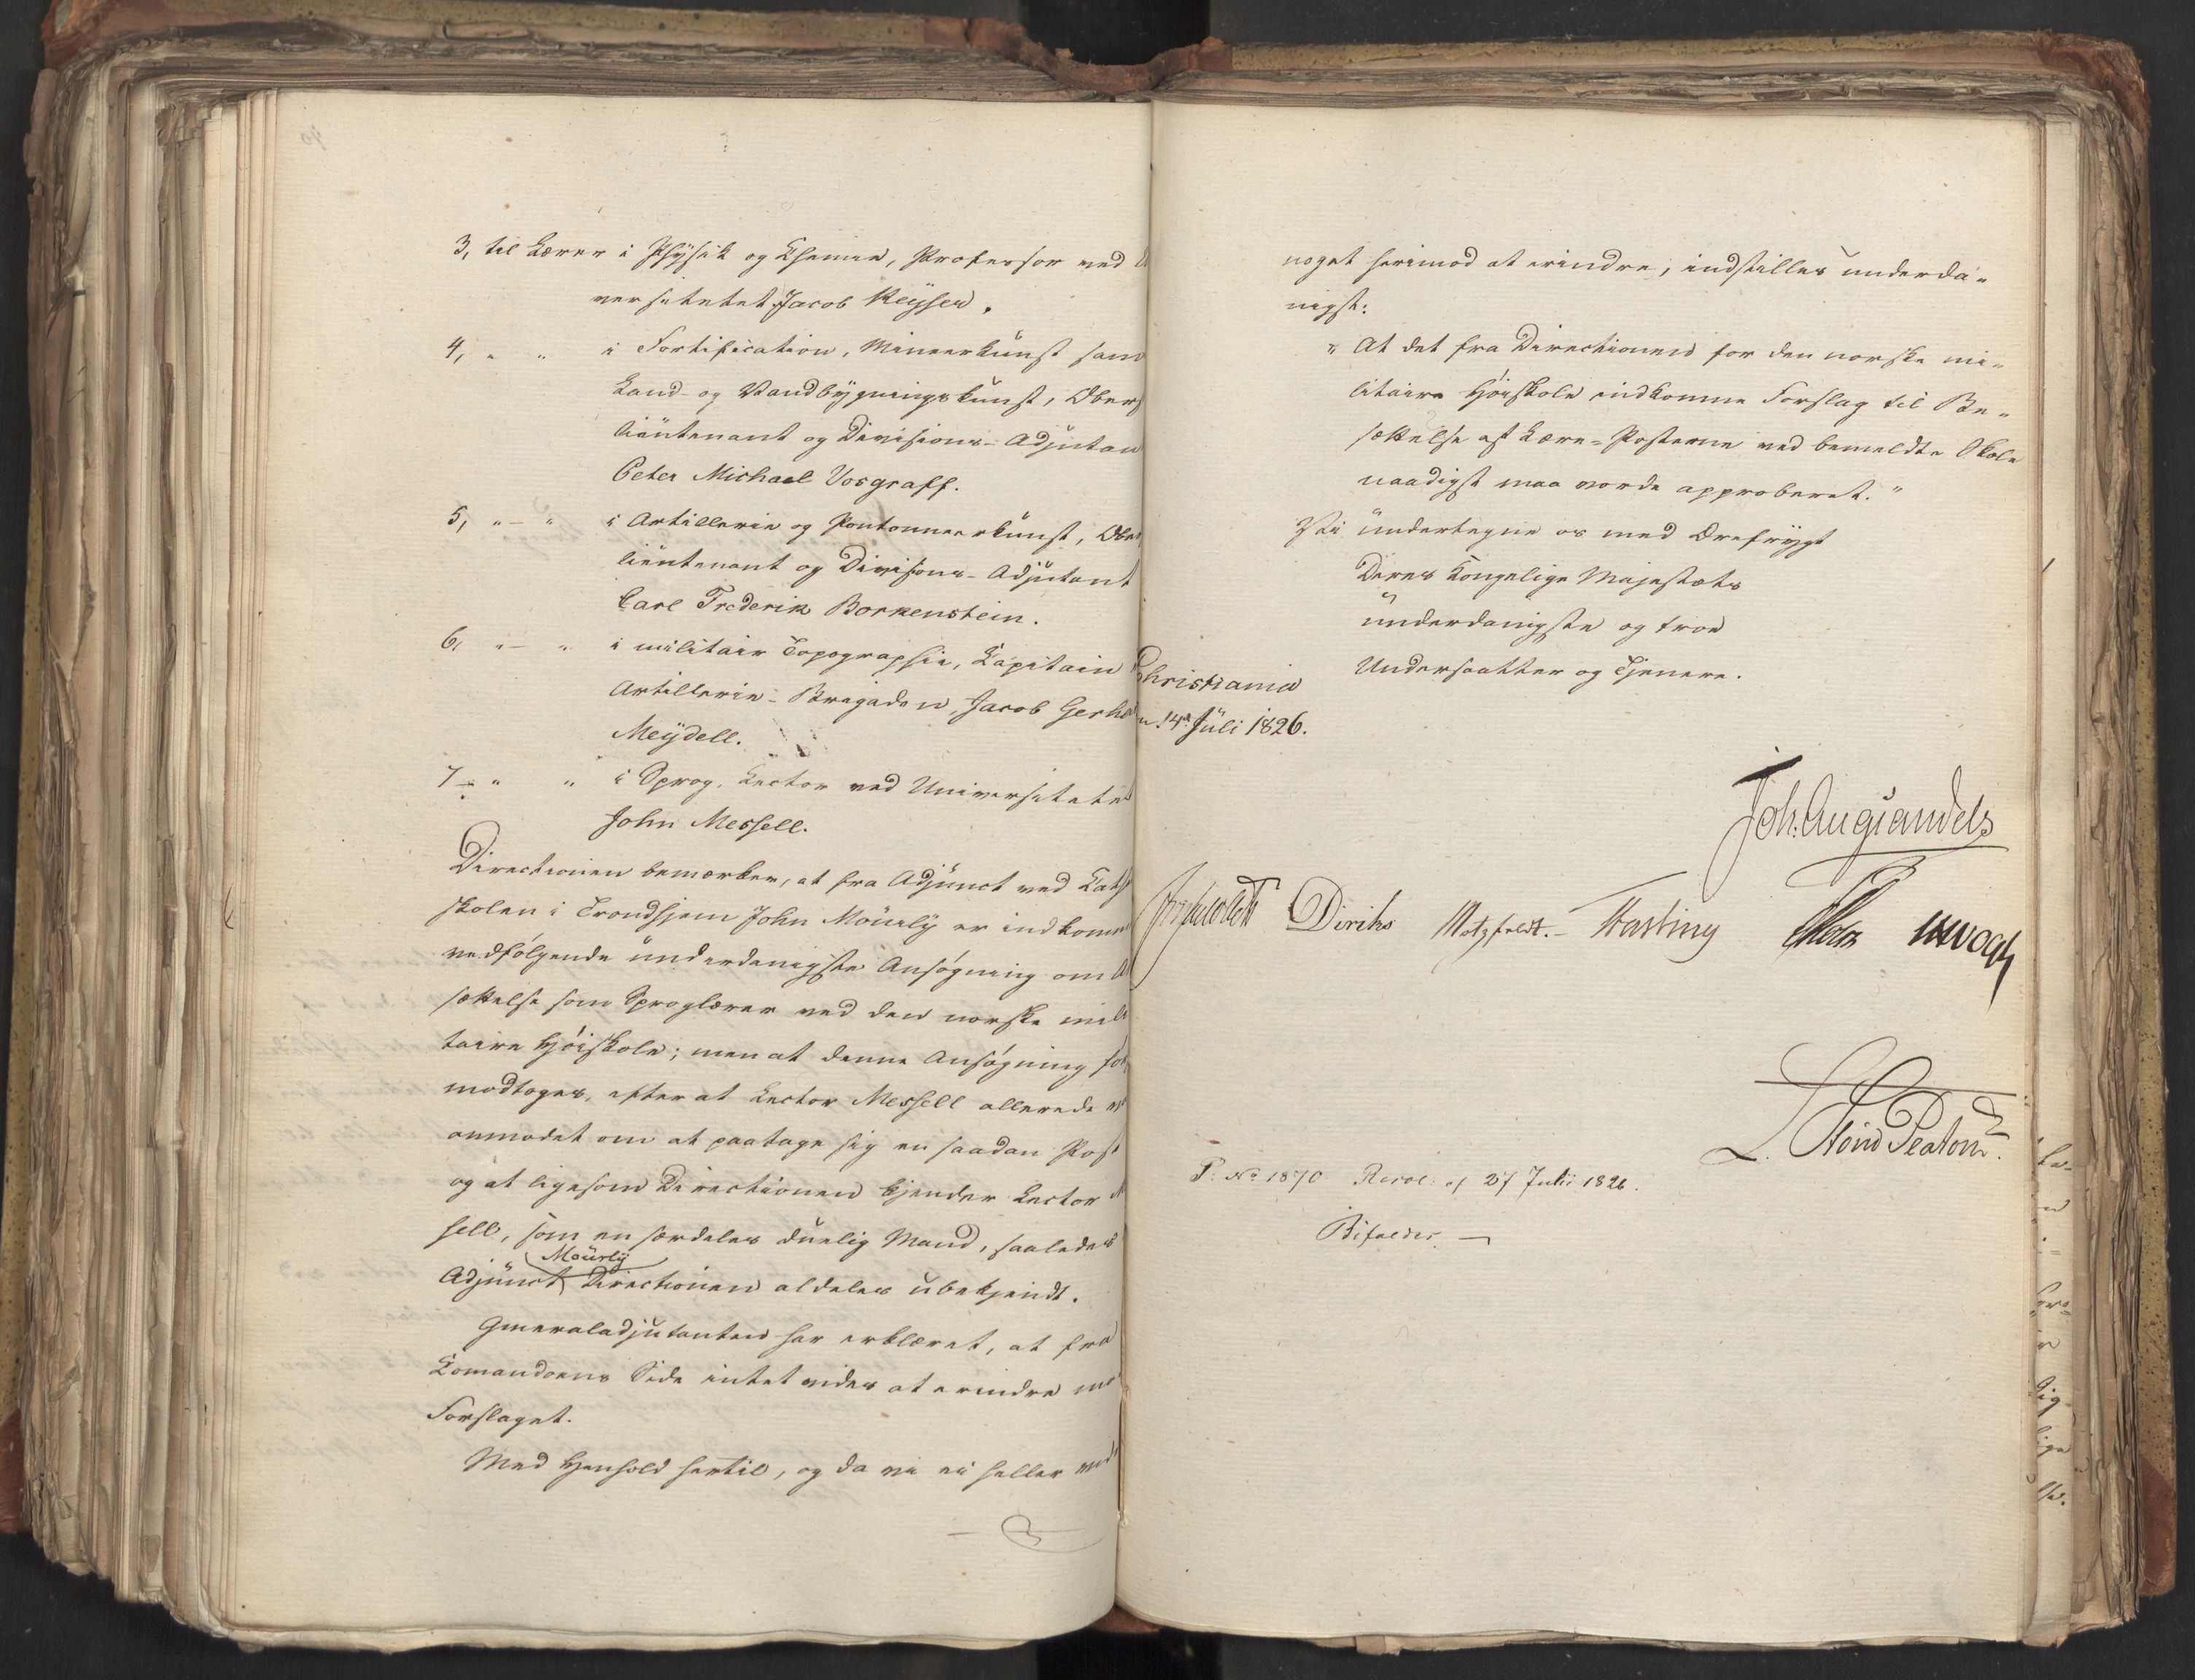 3, til Lærer i Physik og Chemie, Professor ved U
versitetet Jacob Keyser.
4, " " i Fortification, Mineerkunst samt
Land- og Vandbygningskunst, Ober
lieutenant og Divisions-Adjutan
Peter Michael Vosgraff.
5, " - " i Artillerie og Pontonneerkunst, Ober
lieutenant og Divisions-Adjutant
Carl Frederik Borkenstein.
6, " - " i militair Topographie, Capitain
Artillerie-Brigaden, Jacob Gerha
Meydell.
7 - " " i Sprog, Lector ved Universitetet
John Messell.
Directionen bemærker, at fra Adjunct ved Kath
skolen i Trondhjem John Mourly er indkomm
vedfølgende underdanigste Ansøgning om A
sættelse som Sproglærer ved den norske mili
taire Høiskole; men at denne Ansøgning før
modtoges, efter at Lector Messell allerede
anmodet om at paatage sig en saadan Post
og at ligesom Directionen kjender Lector M
sell, som en særdeles duelig Mand, saaledes
Mourly
Adjunct Directionen aldeles ubekjendt.
Generaladjutanten har erklæret, at fra
Comandoens Side intet vides at erindre mod
Forslaget.
Med Henhold hertil, og da vi ei heller
noget herimod at erindre, indstilles underda-
nigst:
" At det fra Directionen for den norske mi-
litaire Høiskole indkomne Forslag til Be-
sættelse af Lære-Posterne ved bemeldte Skole
naadigst maa vorde approberet."
Vi undertegne os med Ærefrygt
Deres Kongelige Majestæts
underdanigste og troe
Undersaatter og Tjenere.
Christiania
n 14de Juli 1826.
Joh. Aug Sandels
Collett Diriks Motzfeldt. Fasting Holst Vogt
L. Stoud Platou
P: No 1870. Resol: af 27 Julii 1826.
Bifaldes.